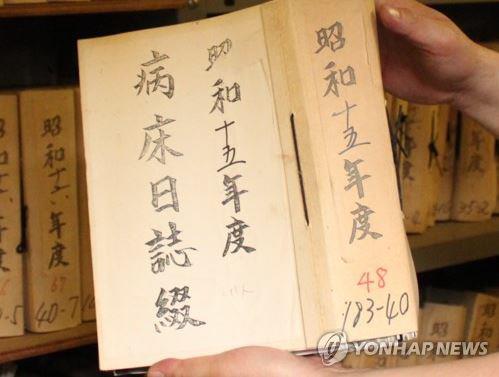 昭和十五年度
病床日誌綴
昭和十五年度
48
183-40
昭和十六年度
67
40-7
YONHAP NEWS